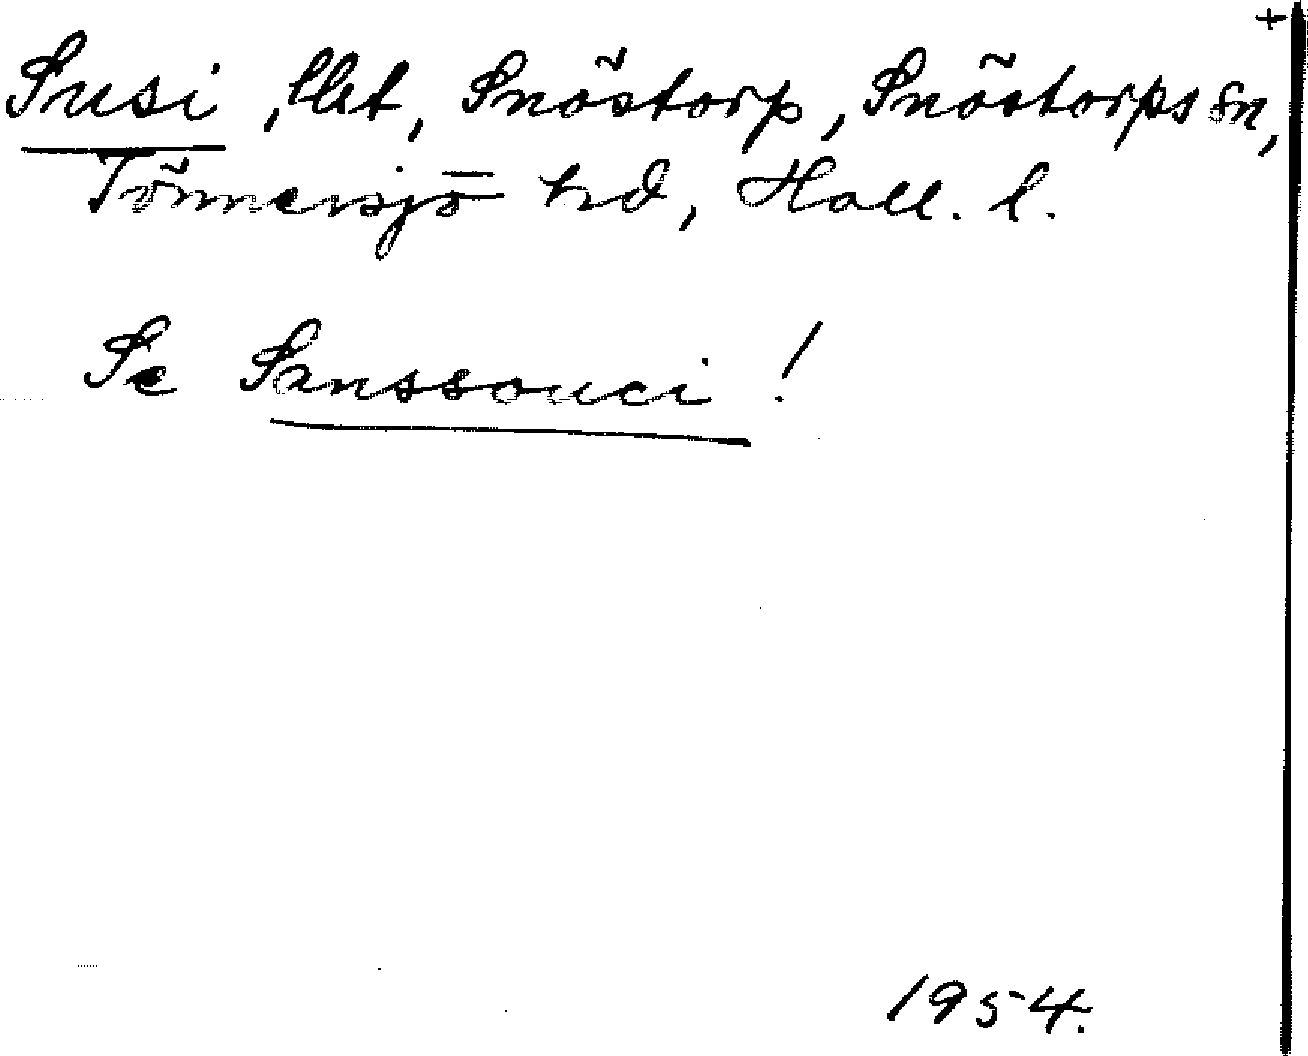 +
Susi, lht, Snöstorp, Snöstorps sn,
Tönnersjö hd, Hall. l.
Se Sanssouci!
1954.